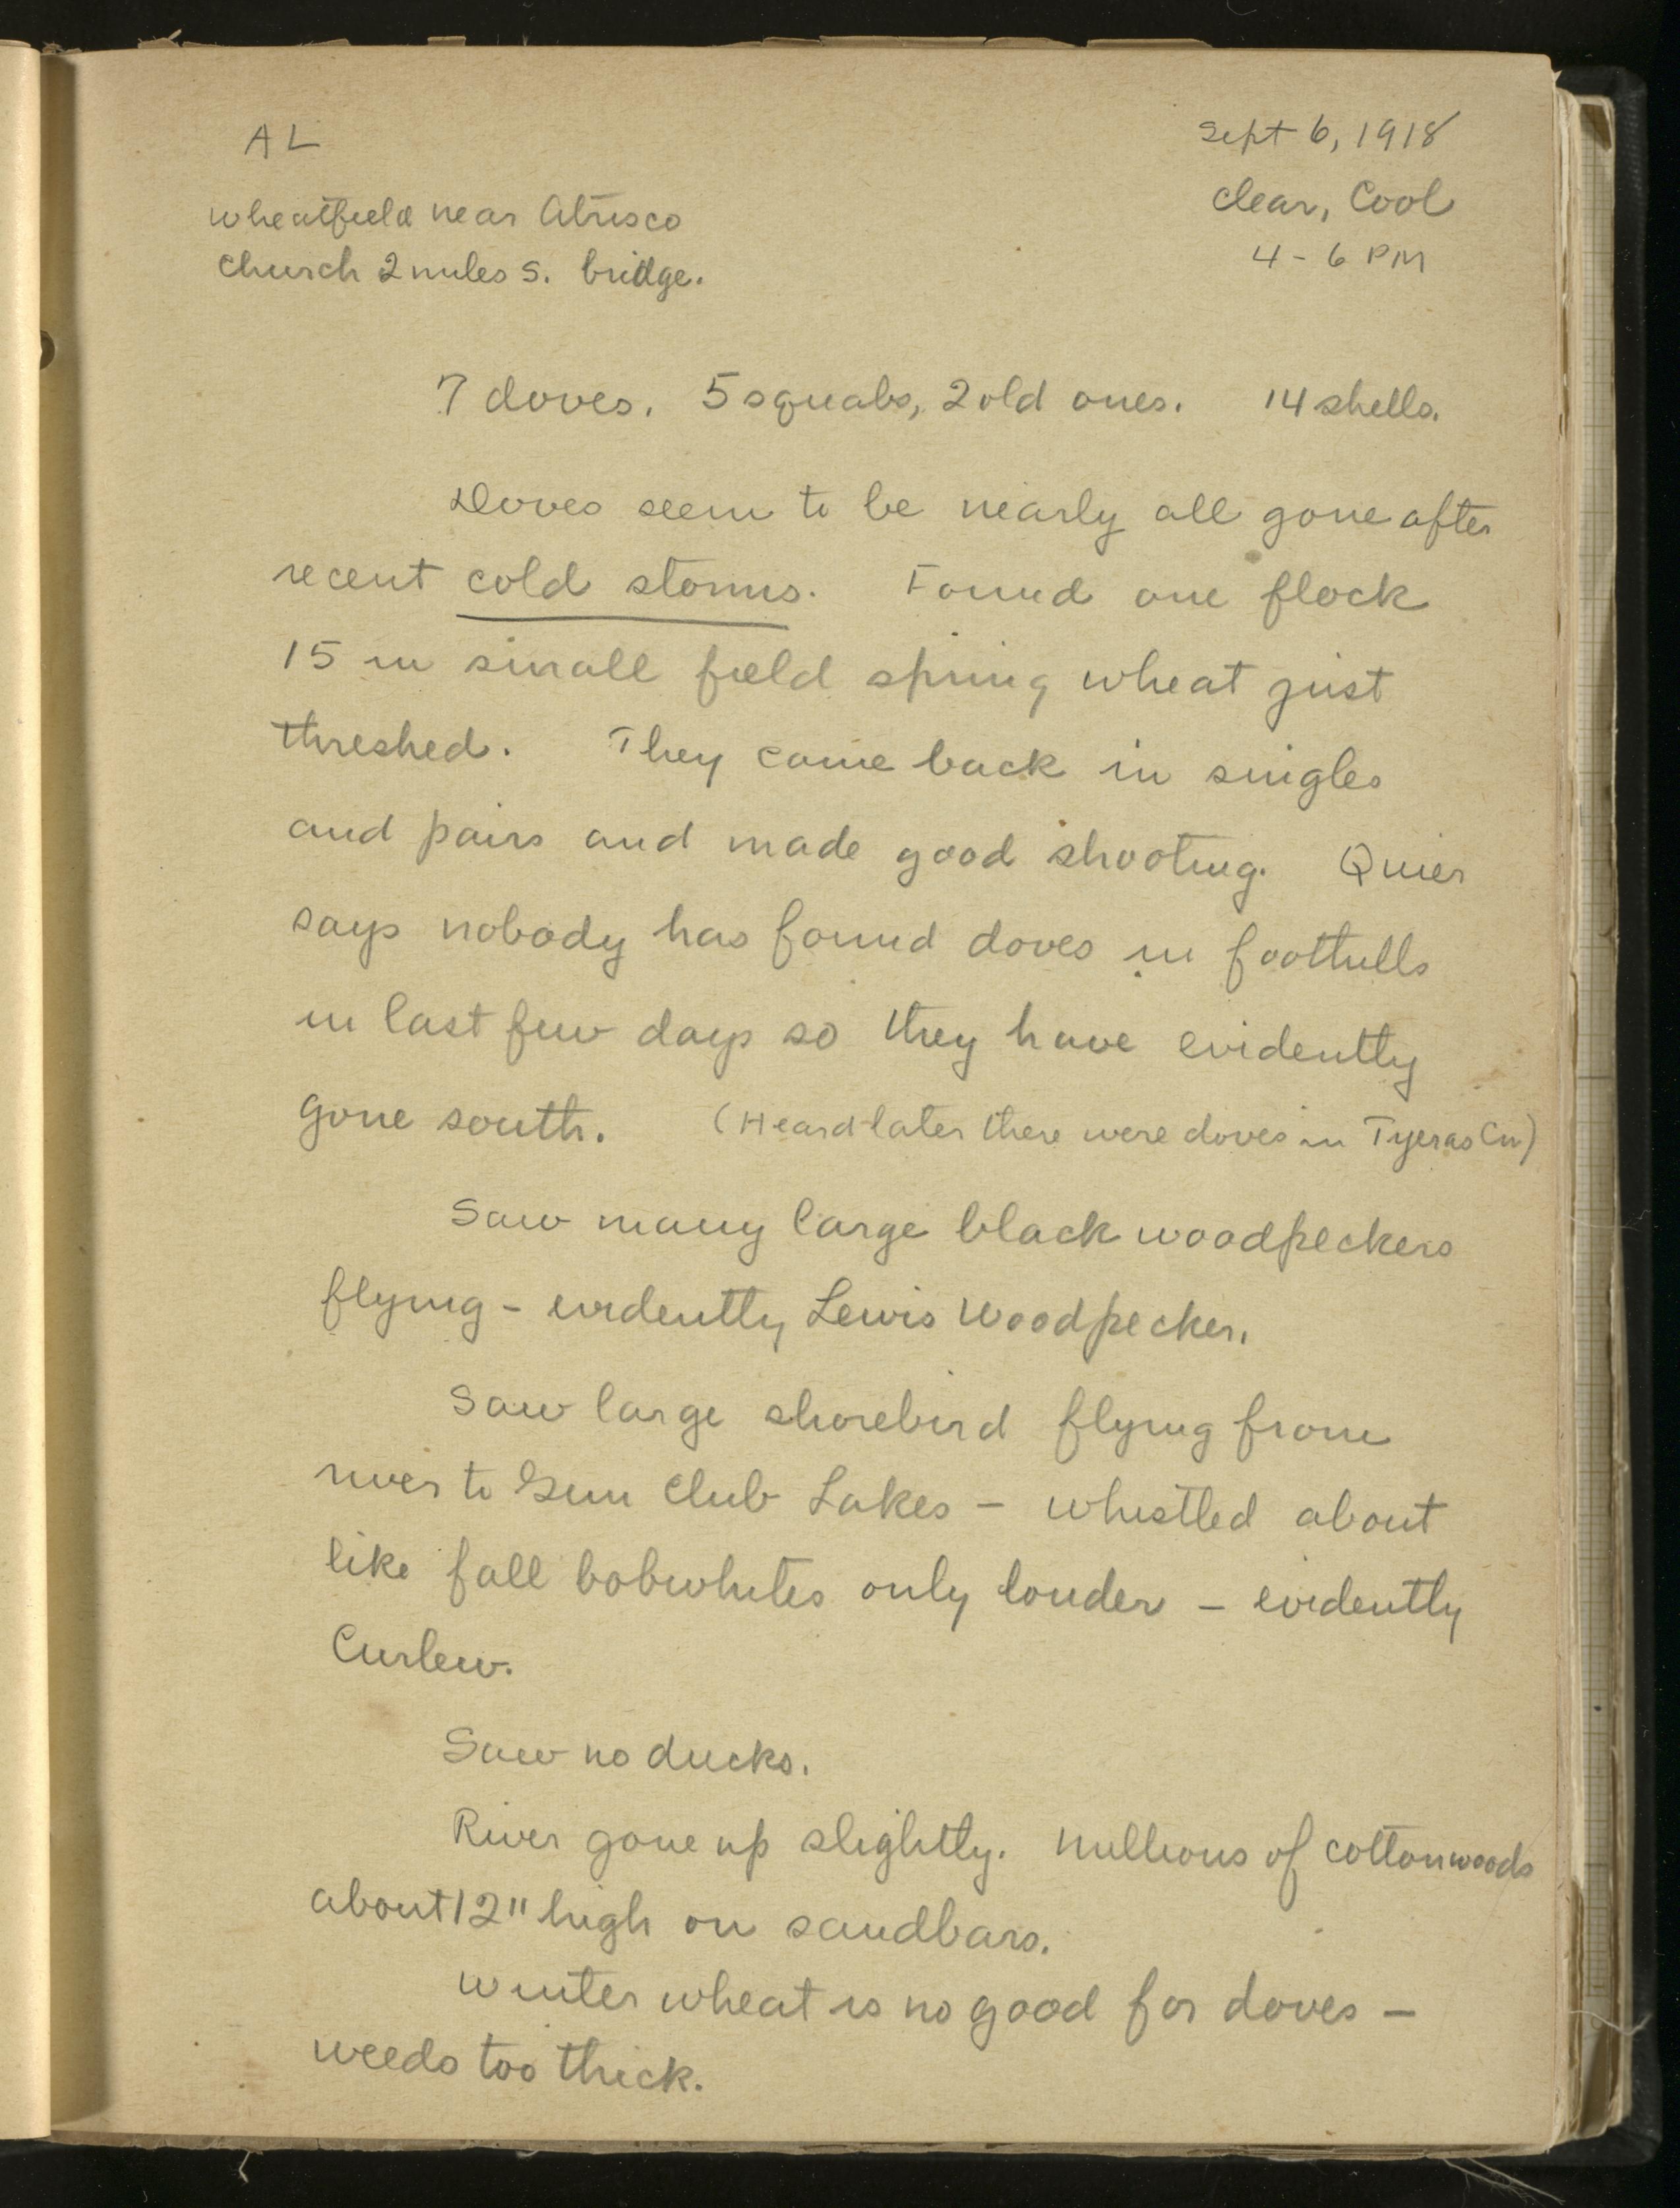 AL
Sept 6, 1918
wheatfield near Atrisco
Clear, Cool
church 2 miles S. bridge.
4 - 6 PM
7 doves. 5 squabs, 2 old ones. 14 shells.
Doves seem to be nearly all gone after
recent cold storms. Found one flock
15 in small field spring wheat just
threshed. They came back in singles
and pairs and made good shooting. Quier
says nobody has found doves in foothills
in last few days so they have evidently
gone south. (Heard later there were doves in Tyeras Cn)
Saw many large black woodpeckers
flying - evidently Lewis Woodpecker.
Saw large shorebird flying from
river to Gun Club Lakes - whistled about
like fall bobwhites only louder - evidently
Curlew.
Saw no ducks.
River gone up slightly. Millions of cottonwoods
about 12" high on sandbars.
Winter wheat is no good for doves -
weeds too thick.